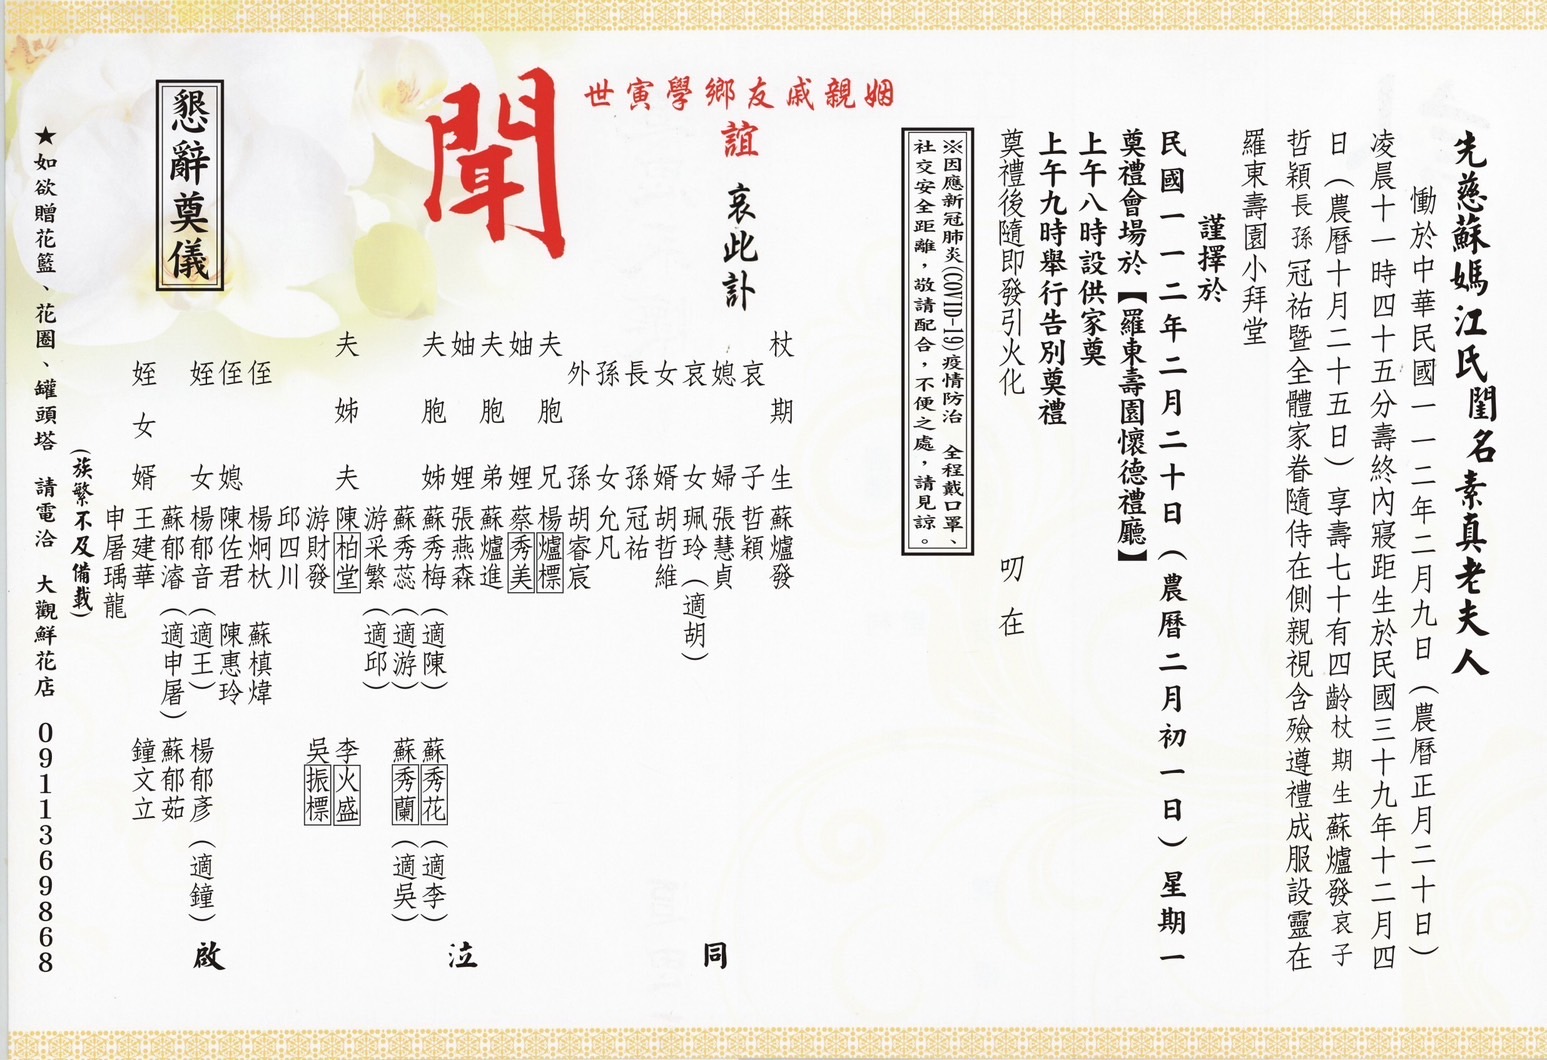 先慈蘇媽江氏閨名素真老夫人
慟於中華民國一一二年二月九日（農曆正月二十日）
凌晨十一時四十五分壽終內寢距生於民國三十九年十二月四
日（農曆十月二十五日）享壽七十有四齡杖期生蘇爐發哀子
哲穎長孫冠祐暨全體家眷隨侍在側親視含殮遵禮成服設靈在
羅東壽園小拜堂
謹擇於
民國一一二年二月二十日（農曆二月初一日）星期一
奠禮會場於【羅東壽園懷德禮廳】
上午八時設供家奠
上午九時舉行告別奠禮
奠禮後隨即發引火化 叨在
※因應新冠肺炎(COVID-19)疫情防治 全程戴口罩、
社交安全距離，敬請配合，不便之處，請見諒。
姻親戚友鄉學寅世
誼 哀此訃
聞
杖期生 蘇爐發
哀子 哲穎
媳婦 張慧貞
哀女 珮玲（適胡）
女婿 胡哲維
長孫 冠祐
孫女 允凡
外孫 胡睿宸
夫胞兄 楊爐標
妯娌 蔡秀美
夫胞弟 蘇爐進
妯娌 張燕森
夫胞姊 蘇秀梅（適陳） 蘇秀花（適李）
蘇秀蕊（適游） 蘇秀蘭（適吳）
游采繁（適邱）
夫姊夫 陳柏堂 李火盛
游財發 吳振標
邱四川
侄 楊炯杕 蘇槙煒
侄媳 陳佐君 陳惠玲
姪女 楊郁音（適王） 楊郁彥（適鐘）
蘇郁濬（適申屠） 蘇郁茹
姪女婿 王建華 鐘文立
申屠瑀龍
同泣啟
（族繁不及備載）
懇辭奠儀
★如欲贈花籃、花圈、罐頭塔 請電洽 大觀鮮花店 0911369868